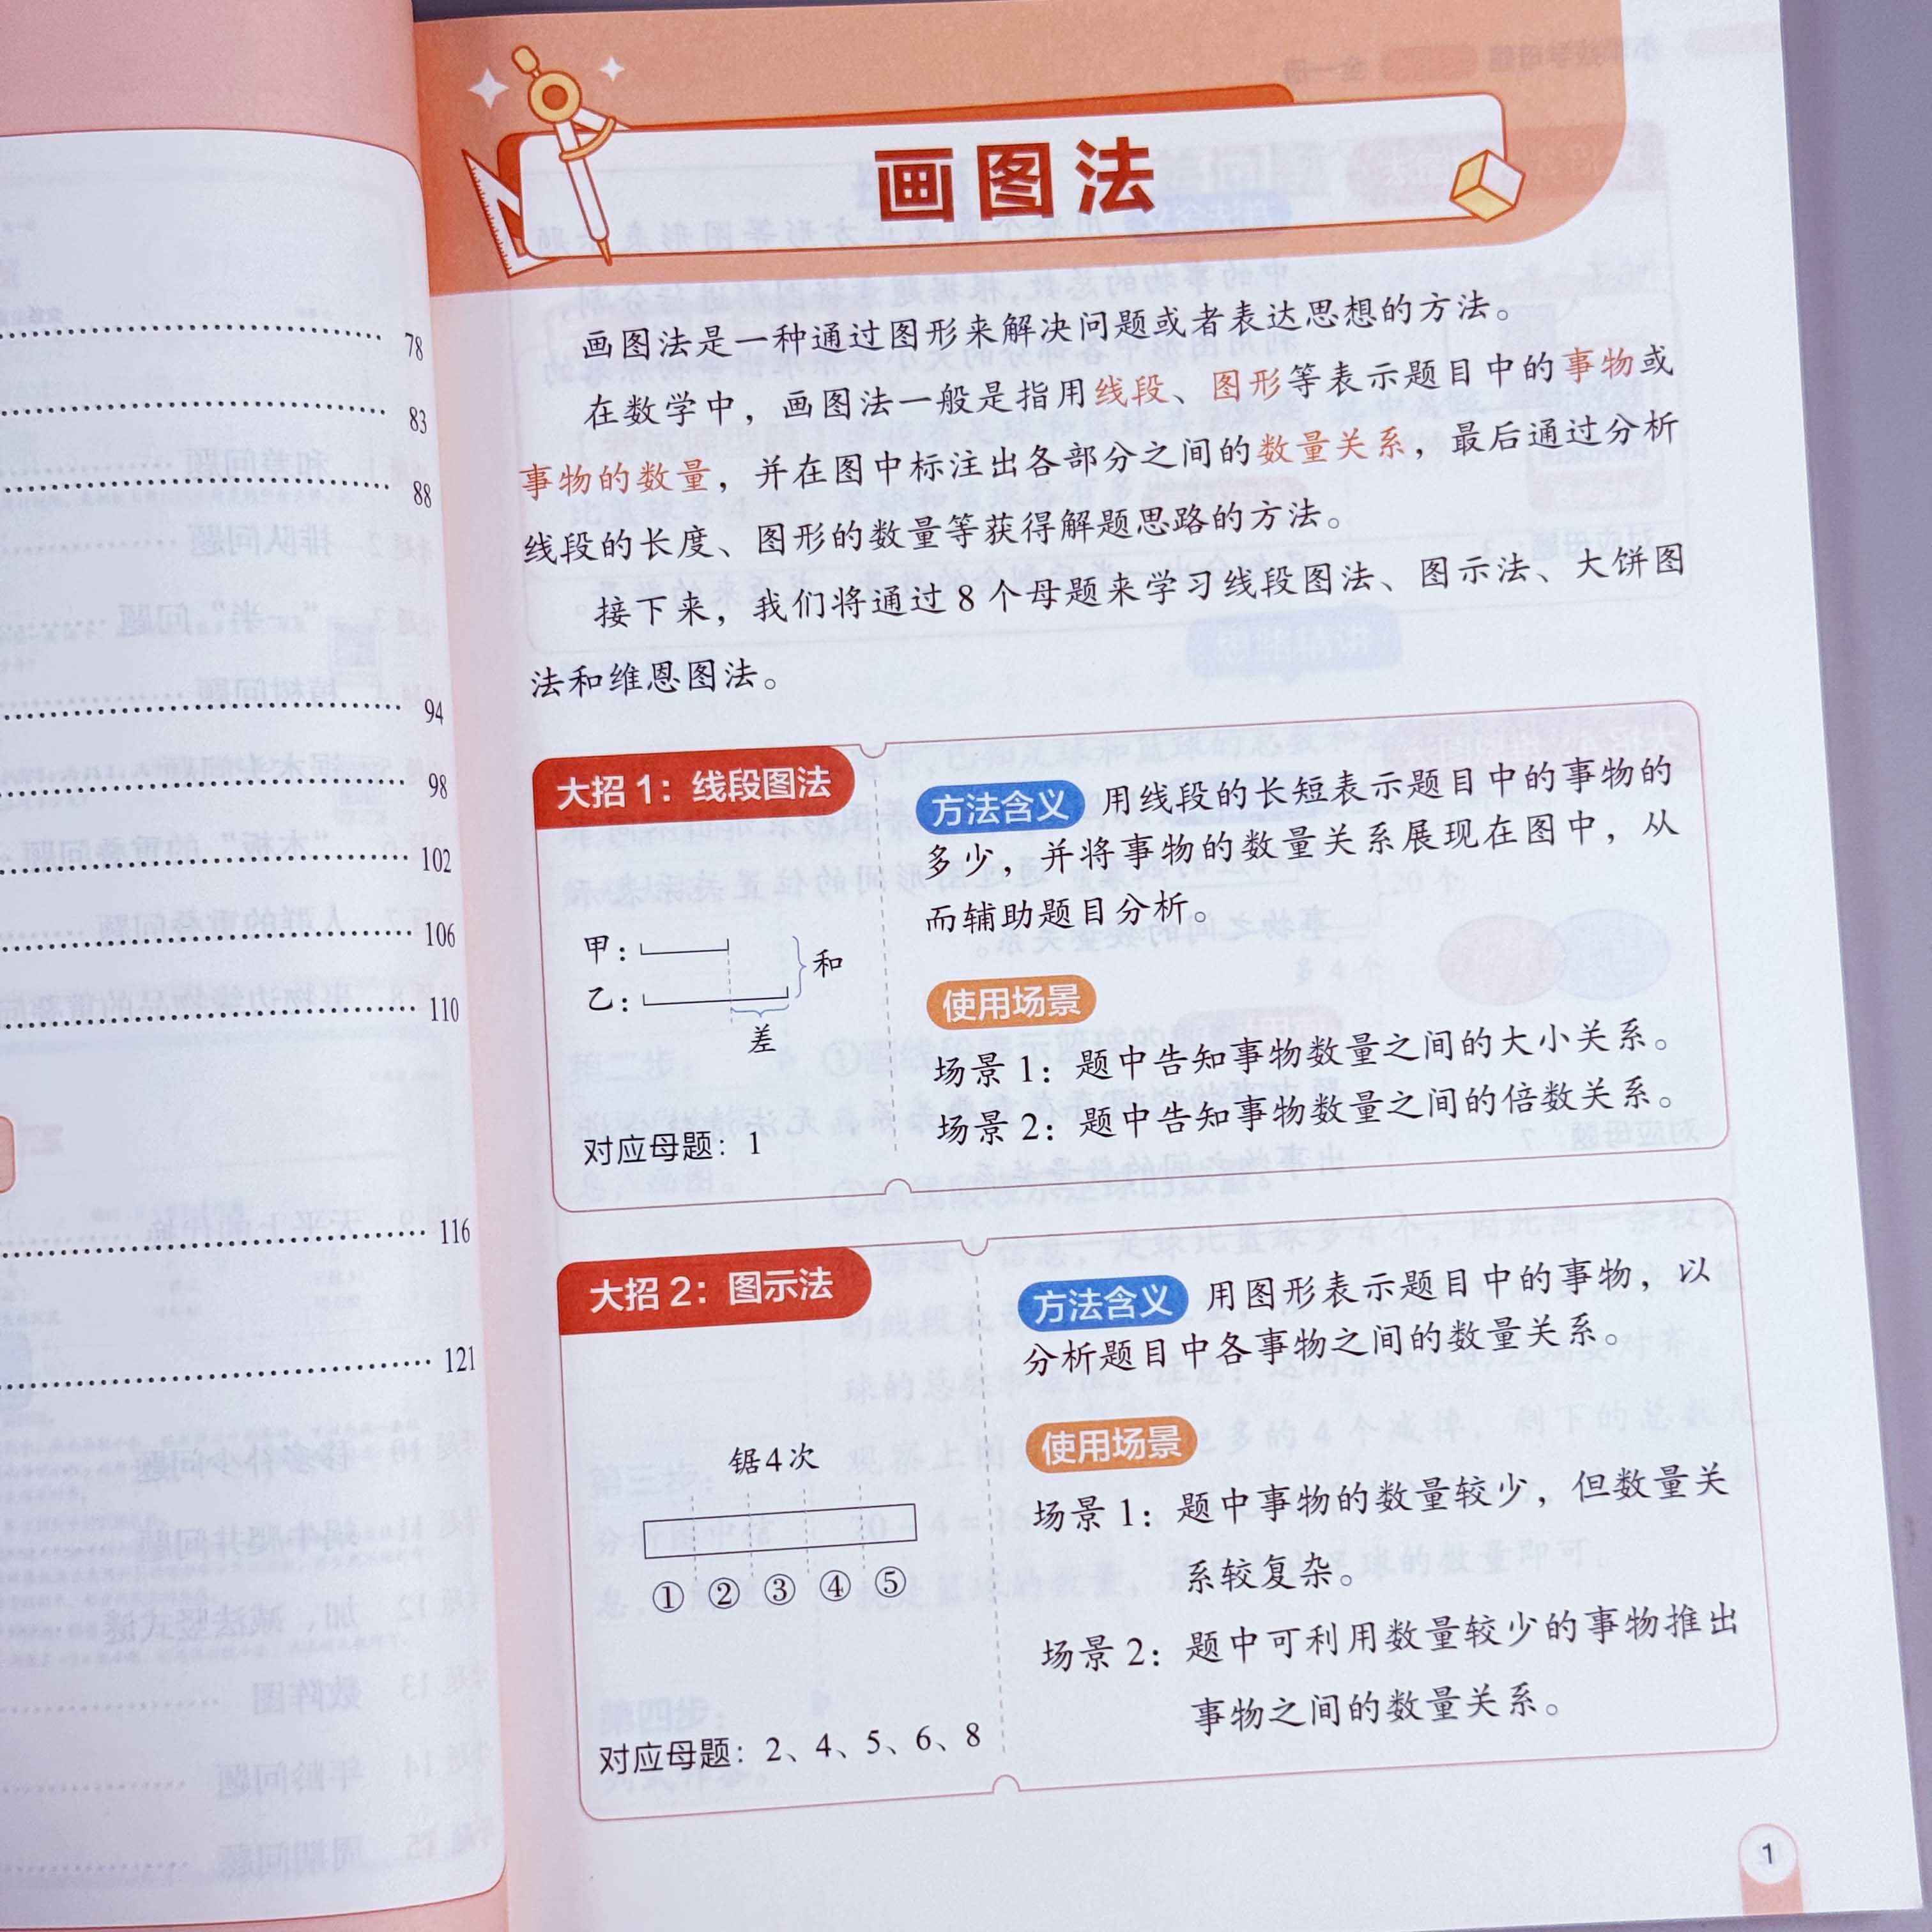 78
83
88
94
98
102
106
110
116
121
画图法
画图法是一种通过图形来解决问题或者表达思想的方法。
在数学中，画图法一般是指用线段、图形等表示题目中的事物或
事物的数量，并在图中标注出各部分之间的数量关系，最后通过分析
线段的长度、图形的数量等获得解题思路的方法。
接下来，我们将通过 8 个母题来学习线段图法、图示法、大饼图
法和维恩图法。
大招 1：线段图法
甲：
乙：
和
差
对应母题：1
方法含义 用线段的长短表示题目中的事物的
多少，并将事物的数量关系展现在图中，从
而辅助题目分析。
使用场景
场景 1：题中告知事物数量之间的大小关系。
场景 2：题中告知事物数量之间的倍数关系。
大招 2：图示法
锯4次
① ② ③ ④ ⑤
对应母题：2、4、5、6、8
方法含义 用图形表示题目中的事物，以
分析题目中各事物之间的数量关系。
使用场景
场景 1：题中事物的数量较少，但数量关
系较复杂。
场景 2：题中可利用数量较少的事物推出
事物之间的数量关系。
1